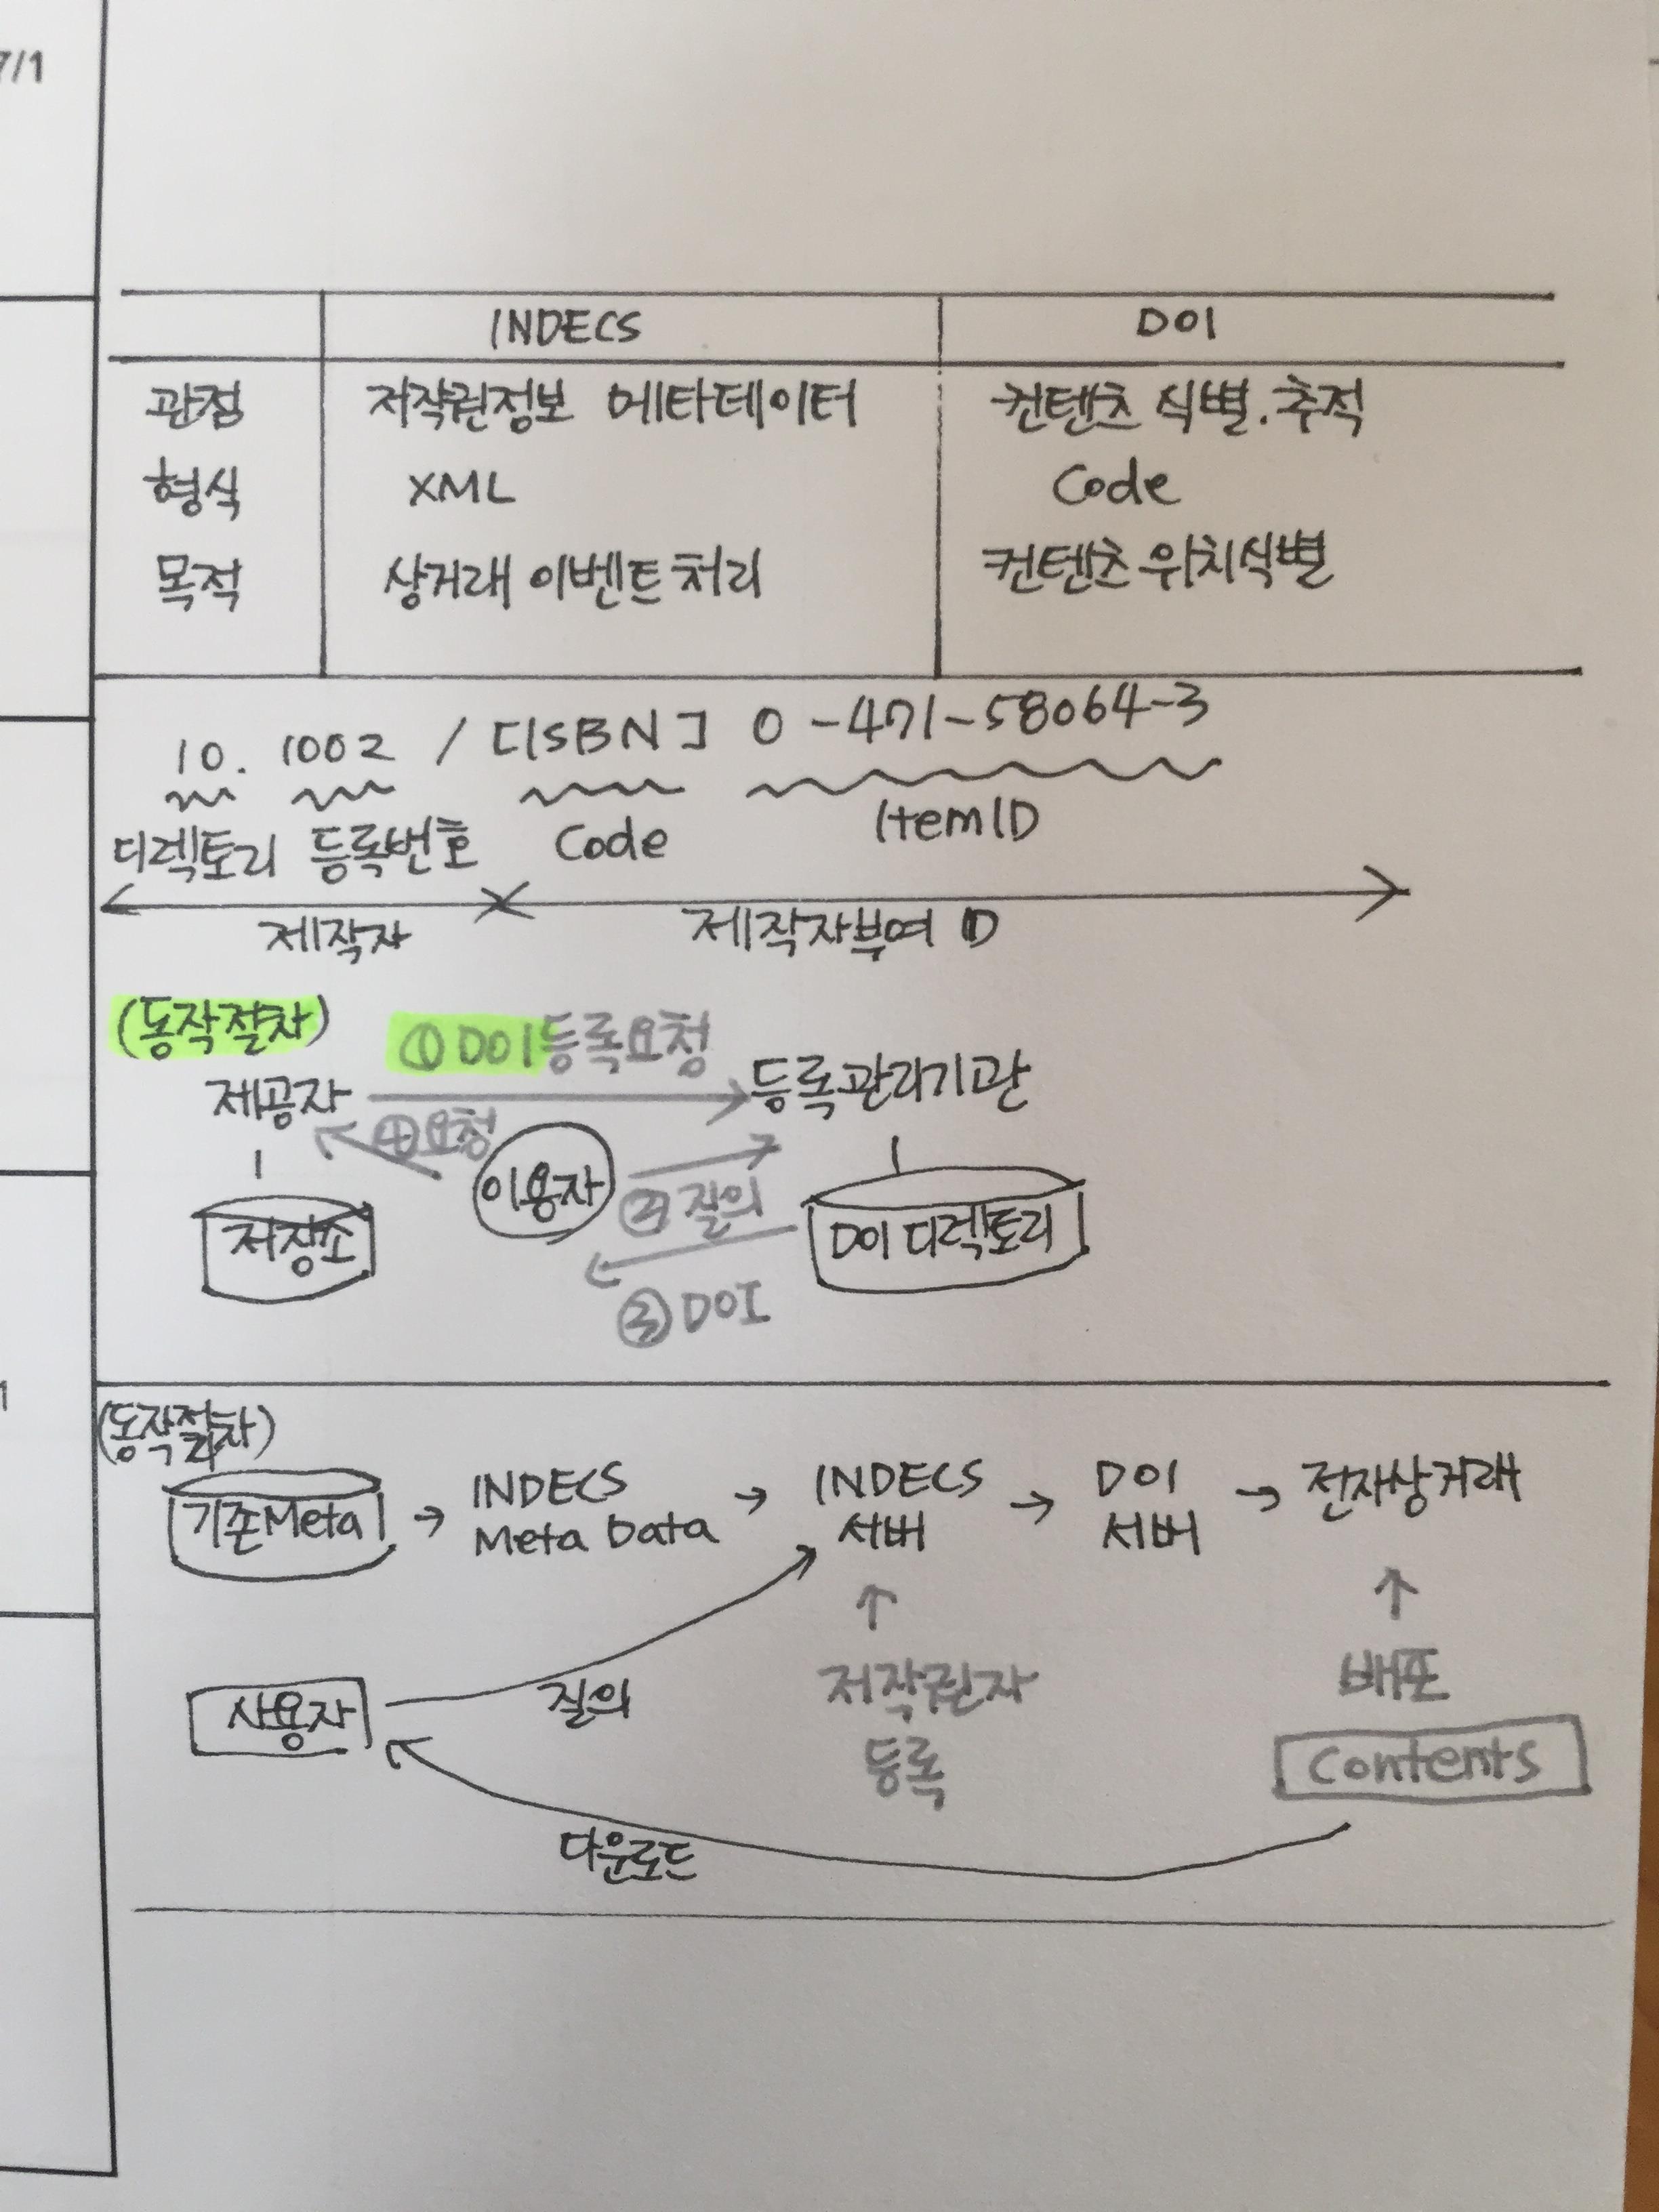 7/1
INDECS DOI
관점 저작권정보 메타데이터 컨텐츠 식별.추적
형식 XML Code
목적 상거래 이벤트 처리 컨텐츠 위치식별
10. 1002 / [ISBN] 0-471-58064-3
디렉토리 등록번호 Code ItemID
제작자 제작자부여 ID
(동작절차)
① DOI 등록요청
제공자 등록관리기관
④요청
이용자
② 질의
저장소
DOI 디렉토리
③ DOI
1
(동작절차)
기존Meta → INDECS → INDECS → DOI → 전자상거래
Meta Data 서버 서버
↑ ↑
저작권자 배포
사용자 질의
등록 Contents
다운로드